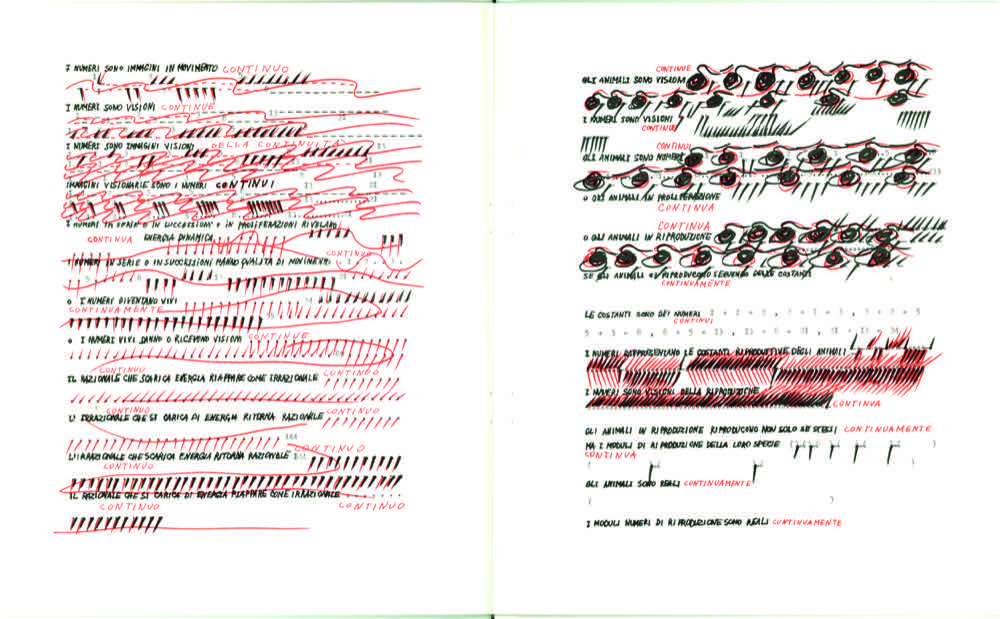 I NUMERI SONO IMMAGINI IN MOVIMENTO CONTINUO
I NUMERI SONO VISIONI CONTINUE
I NUMERI SONO IMMAGINI VISIONI DELLA CONTINUITÀ
IMMAGINI VISIONARIE SONO I NUMERI CONTINUI
I NUMERI IN SERIE O IN SUCCESSIONI O IN PROLIFERAZIONI RIVELANO
CONTINUA ENERGIA DINAMICA
CONTINUO
I NUMERI IN SERIE O IN SUCCESSIONI HANNO QUALITÀ DI MOVIMENTI
O I NUMERI DIVENTANO VIVI
CONTINUAMENTE
O I NUMERI VIVI DANNO O RICEVONO VISIONI CONTINUE
CONTINUO CONTINUO
IL RAZIONALE CHE SCARICA ENERGIA RIAPPARE COME IRRAZIONALE
CONTINUO CONTINUO
L'IRRAZIONALE CHE SI CARICA DI ENERGIA RITORNA RAZIONALE
CONTINUO
L'IRRAZIONALE CHE SCARICA ENERGIA RITORNA RAZIONALE
CONTINUO
IL RAZIONALE CHE SI CARICA DI ENERGIA RIAPPARE COME IRRAZIONALE
CONTINUO CONTINUO
CONTINUE
GLI ANIMALI SONO VISIONI
I NUMERI SONO VISIONI
CONTINUE
CONTINUI
GLI ANIMALI SONO NUMERI
O GLI ANIMALI IN PROLIFERAZIONE
CONTINUA
CONTINUA
O GLI ANIMALI IN RIPRODUZIONE
SE GLI ANIMALI SI RIPRODUCONO SEGUENDO DELLE COSTANTI
CONTINUAMENTE
LE COSTANTI SONO DEI NUMERI 1 + 1 = 2 , 2 + 1 = 3 , 3 + 2 = 5
CONTINUI
5 + 3 = 8 , 8 + 5 = 13 , 13 + 8 = 21 , 21 + 13 = 34
I NUMERI RAPPRESENTANO LE COSTANTI RIPRODUTTIVE DEGLI ANIMALI
I NUMERI SONO VISIONI DELLA RIPRODUZIONE
CONTINUA
GLI ANIMALI IN RIPRODUZIONE RIPRODUCONO NON SOLO SE STESSI CONTINUAMENTE
MA I MODULI DI RIPRODUZIONE DELLA LORO SPECIE
CONTINUA
GLI ANIMALI SONO REALI CONTINUAMENTE
I MODULI NUMERI DI RIPRODUZIONE SONO REALI CONTINUAMENTE